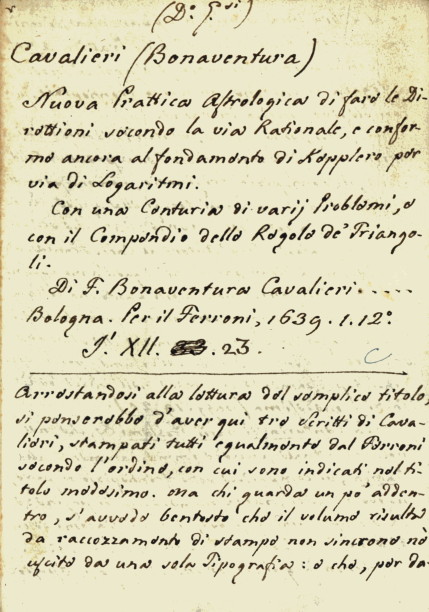 (D.° G.si)
Cavalieri (Bonaventura)
Nuova Prattica Astrologica di fare le Di-
rettioni secondo la via Rationale, e confor-
me ancora al fondamento di Kepplero per
via di Logaritmi.
Con una Centuria di varij Problemi, e
con il Compendio delle Regole de' Triango-
li.
Di F. Bonaventura Cavalieri .....
Bologna. Per il Ferroni, 1639. 1. 12°.
J' XII. 23.
C
Arrestandosi alla lettura del semplice titolo,
si penserebbe d'aver qui tre scritti di Cava-
lieri, stampati tutti egualmente dal Ferroni
secondo l'ordine, con cui sono indicati nel ti-
tolo medesimo. Ma chi guarda un po' adden-
tro, s'avvede bentosto che il volume risulta
da raccozzamento di stampe non sincrone nè
uscite da una sola Tipografia: e che, per da-